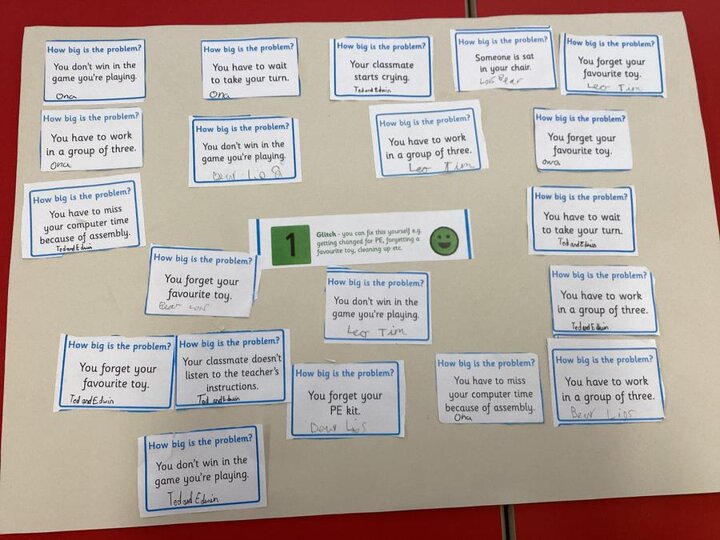 How big is the problem?
You don't win in the
game you're playing.
Ona
How big is the problem?
You have to wait
to take your turn.
Ona
How big is the problem?
Your classmate
starts crying.
Ted and Edwin
How big is the problem?
Someone is sat
in your chair.
Bear
How big is the problem?
You forget your
favourite toy.
Leo Tim
How big is the problem?
You have to work
in a group of three.
Ona
How big is the problem?
You don't win in the
game you're playing.
Bear
How big is the problem?
You have to work
in a group of three.
Leo Tim
How big is the problem?
You forget your
favourite toy.
Ona
How big is the problem?
You have to miss
your computer time
because of assembly.
Ted and Edwin
1
Glitch - you can fix this yourself e.g.
getting changed for PE, forgetting a
favourite toy, cleaning up etc.
How big is the problem?
You have to wait
to take your turn.
Ted and Edwin
How big is the problem?
You forget your
favourite toy.
Bear
How big is the problem?
You don't win in the
game you're playing.
Leo Tim
How big is the problem?
You have to work
in a group of three.
Ted and Edwin
How big is the problem?
You forget your
favourite toy.
Ted and Edwin
How big is the problem?
Your classmate doesn't
listen to the teacher's
instructions.
Ted and Edwin
How big is the problem?
You forget your
PE kit.
How big is the problem?
You have to miss
your computer time
because of assembly.
Ona
How big is the problem?
You have to work
in a group of three.
Bear
How big is the problem?
You don't win in the
game you're playing.
Ted and Edwin